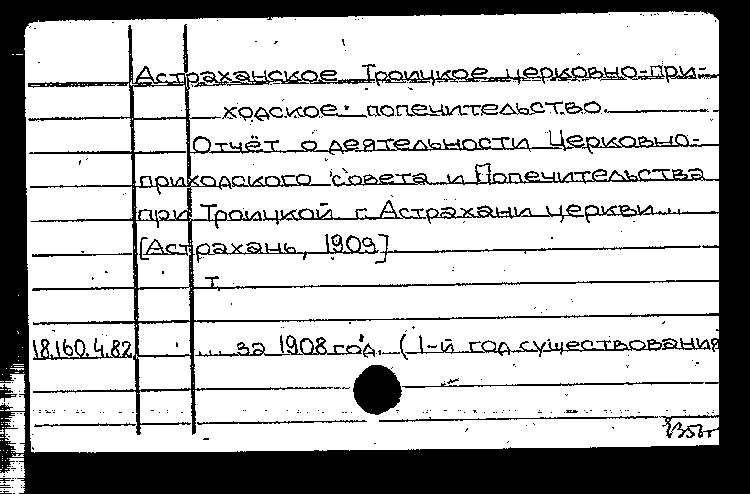 Астраханское Троицкое церковно-при-
ходское попечительство.
Отчёт о деятельности Церковно-
приходского совета и Попечительства
при Троицкой г. Астрахани церкви...
[Астрахань, 1909]
т.
18.160.4.82 ... за 1908 год. (1-й год существования